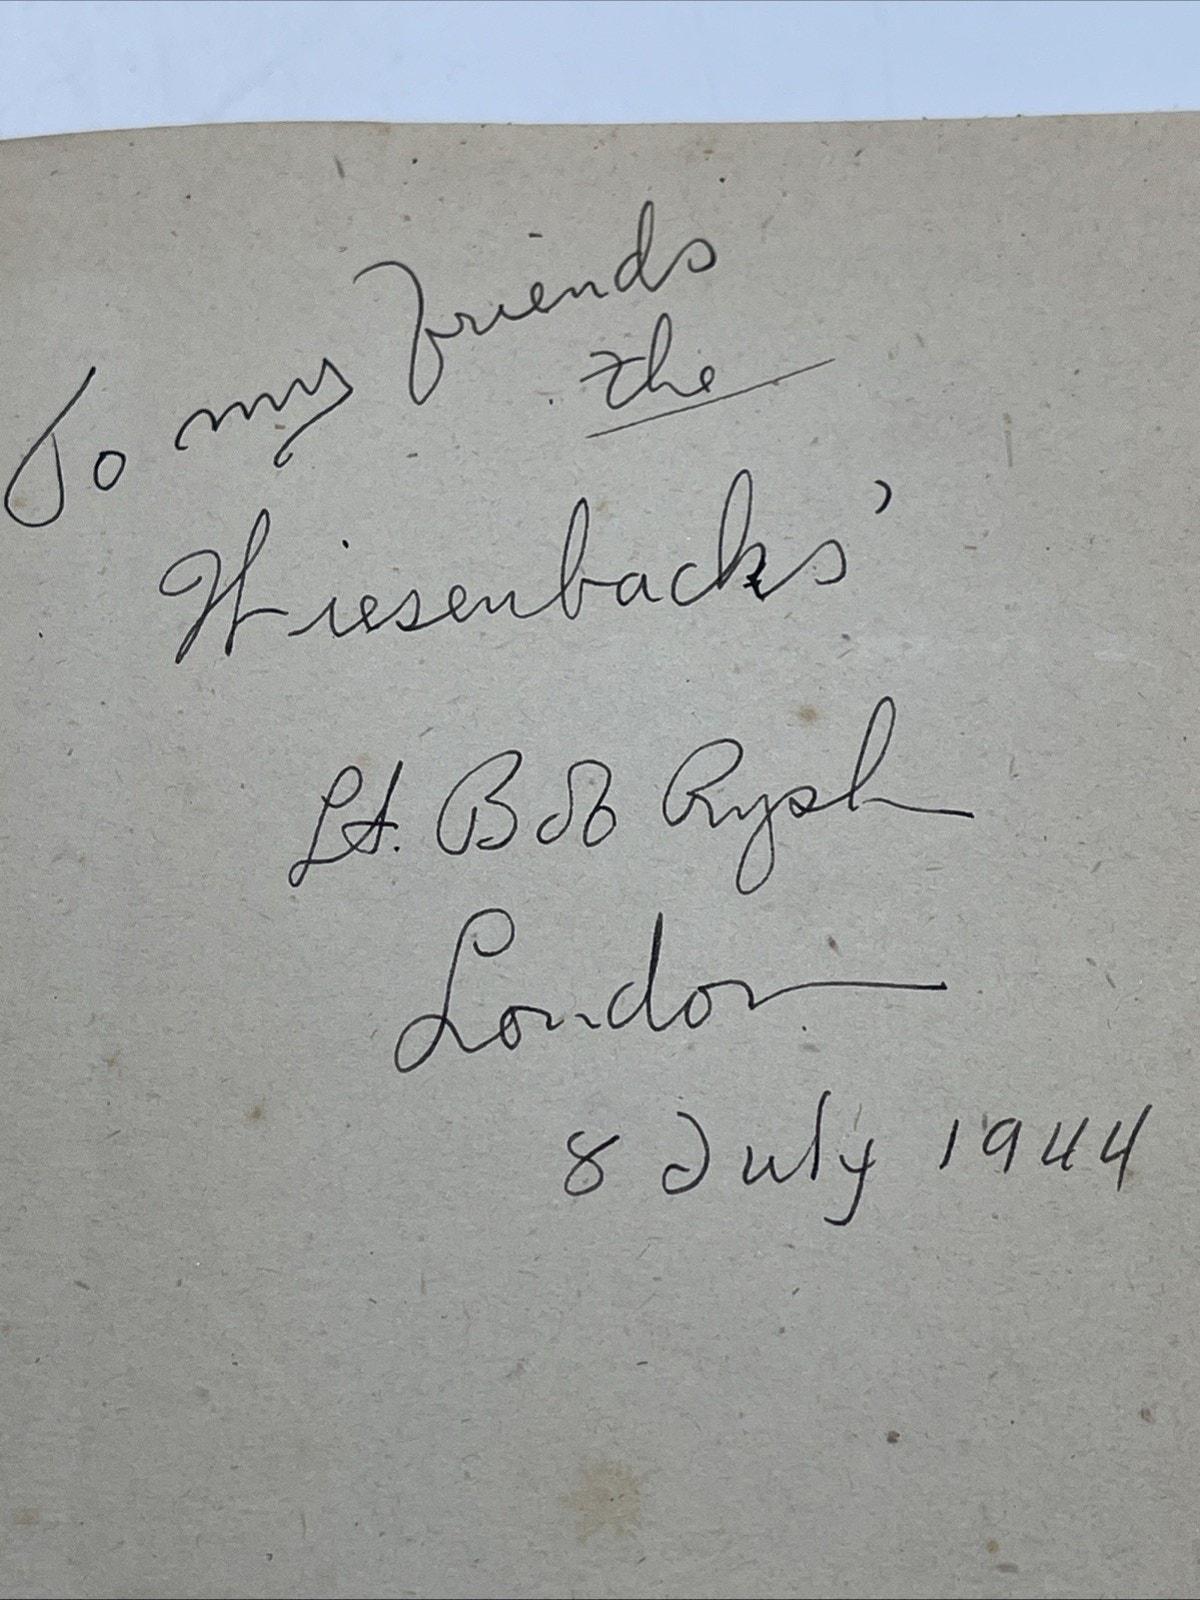 To my friends
the
Wiesenbacks'
Lt. Bob
London
8 July 1944